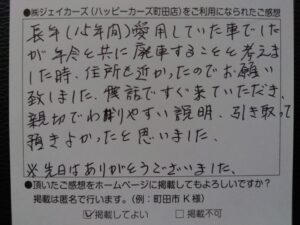 ●㈱ジェイカーズ(ハッピーカーズ町田店)をご利用になられたご感想
長年(15年間)愛用していた車でした
が年令と共に廃車することと考えま
した時、住所も近かったのでお願い
致しました。電話ですぐ来ていただき、
親切でわかりやすい説明、引き取って
頂きよかったと思いました。
※先日はありがとうございました。
●頂いたご感想をホームページに掲載してもよろしいですか?
掲載は匿名で行います。(例:町田市K様)
☑掲載してよい □掲載不可